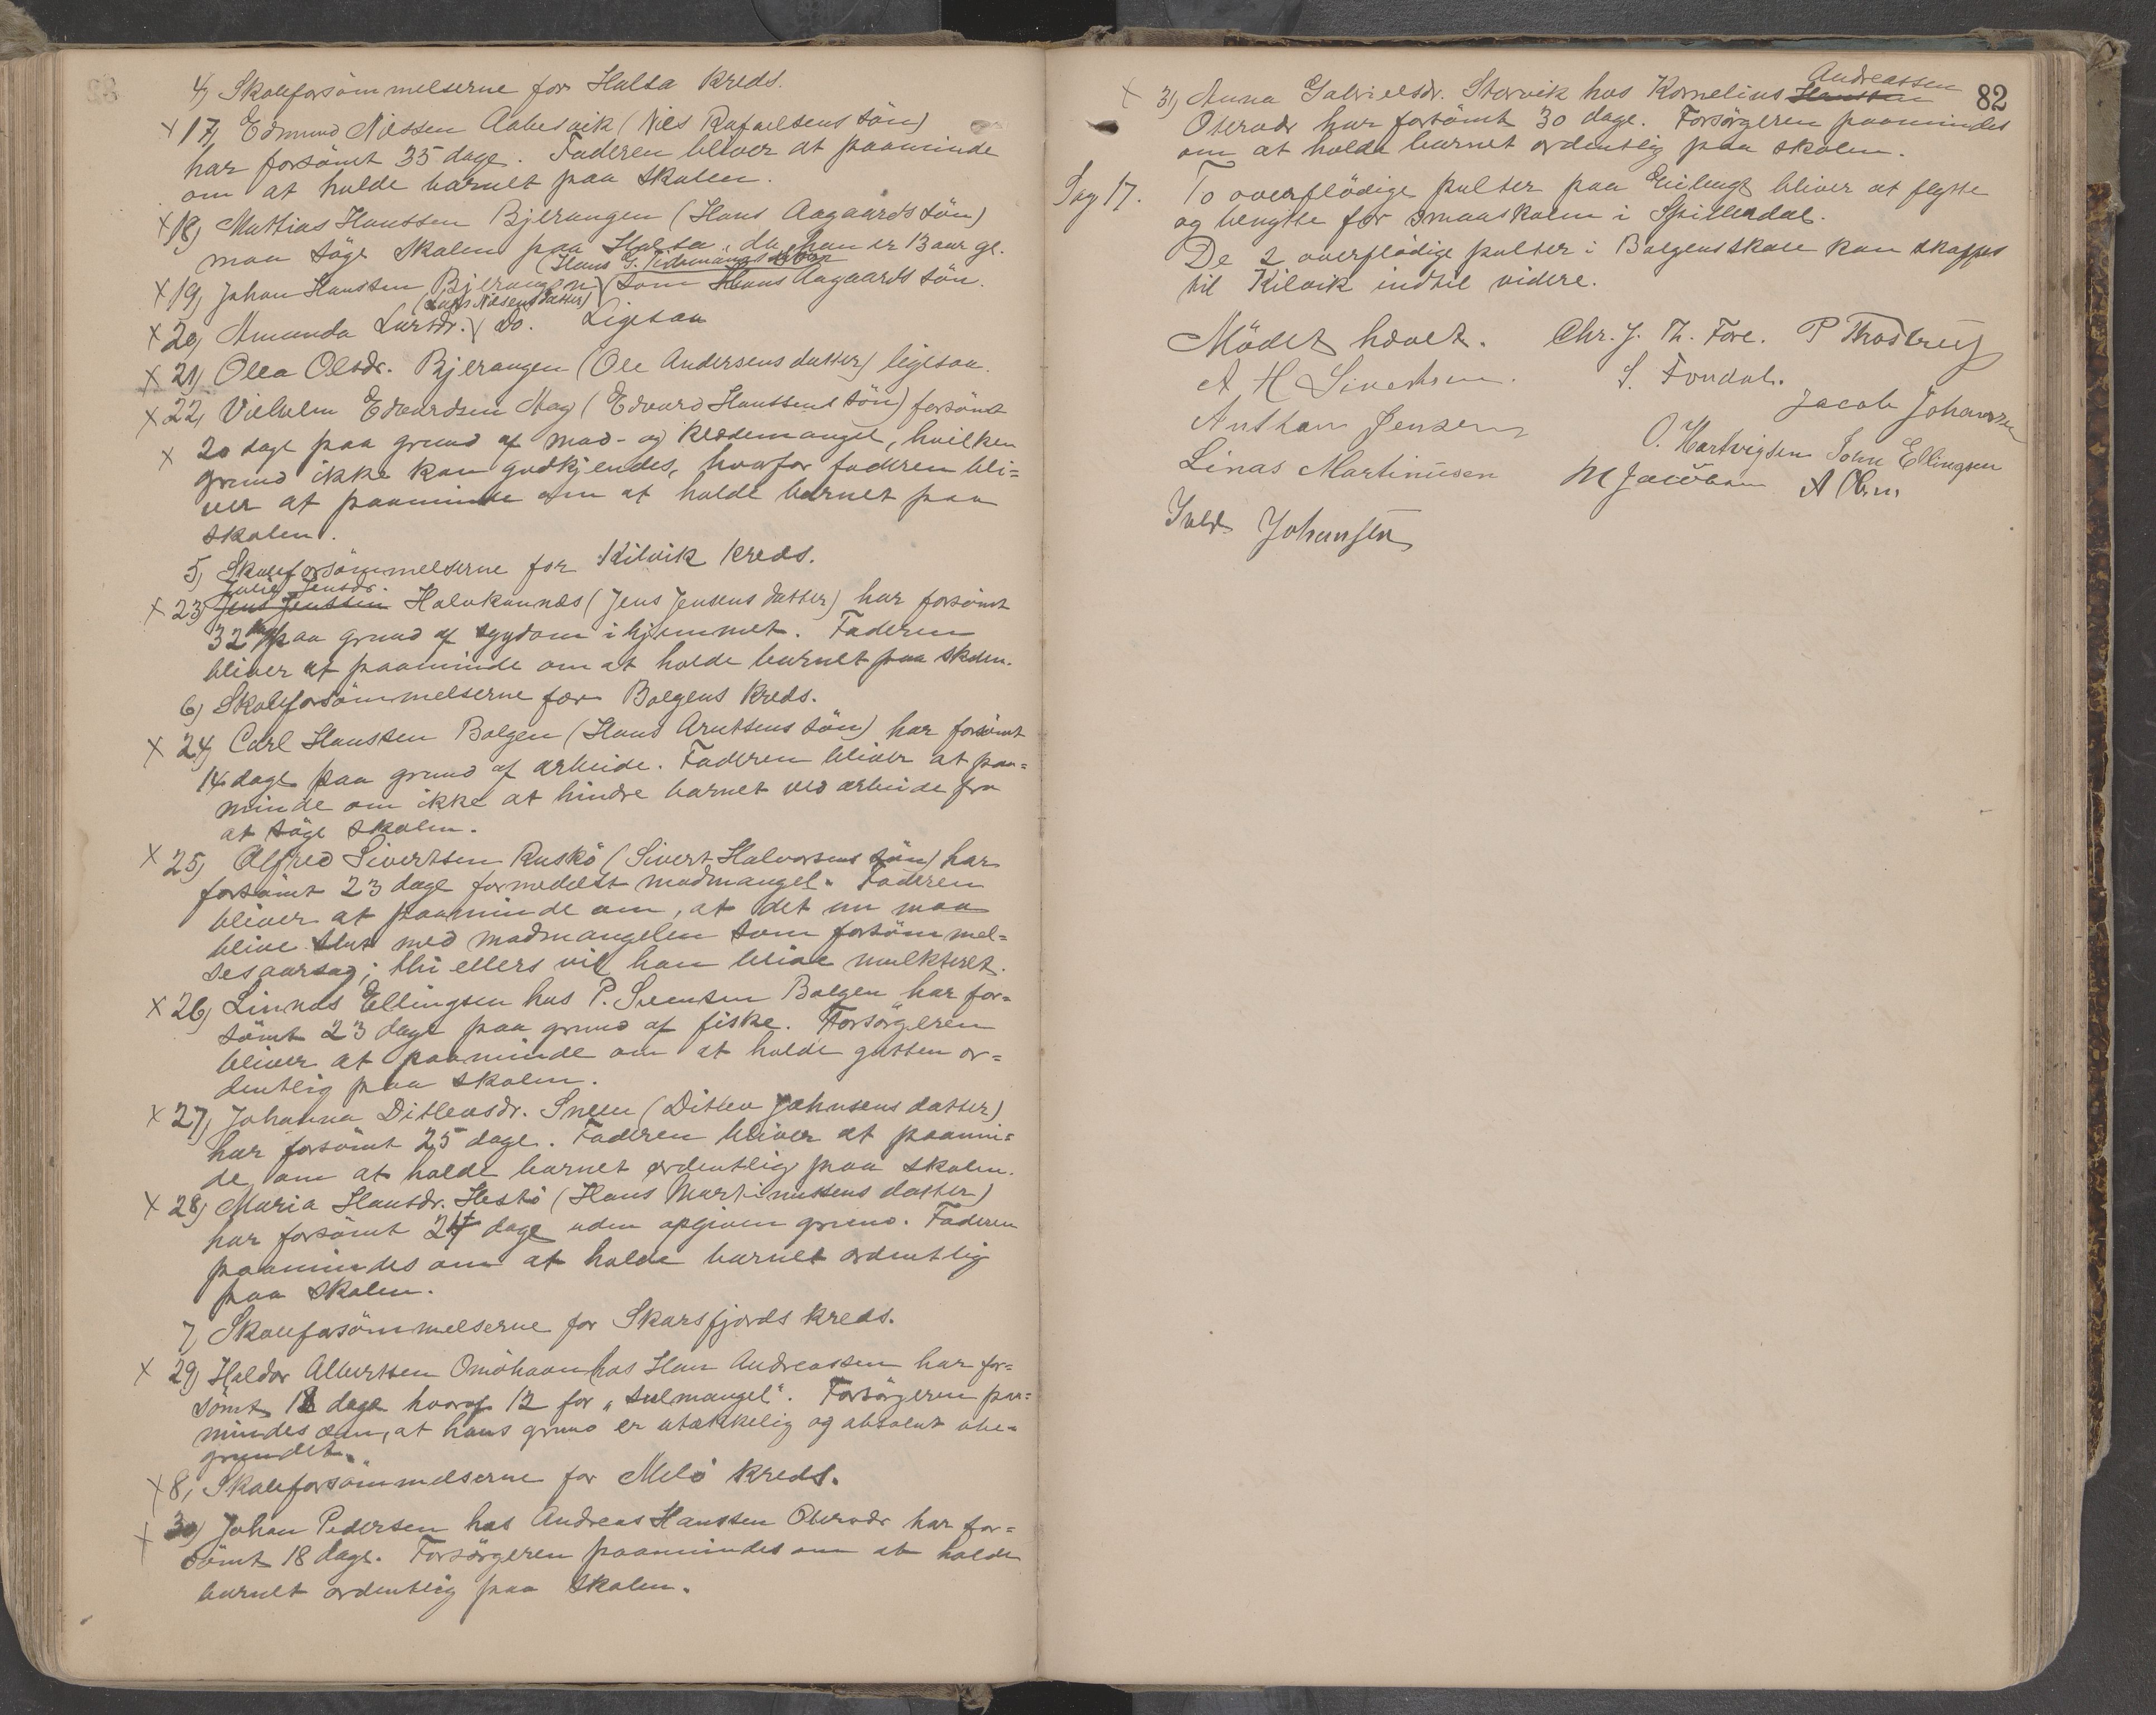 4) Skoleforsömmelserne for Halsa kreds.
x 17) Edmund Nilssen Aabesvik (Nils Rafaelsens sön)
har forsömt 35 dage. Faderen bliver at paaminde
om at holde barnet paa skolen.
x 18) Mathias Hanssen Bjerangen (Hans Aagaards sön)
maa söge skolen paa Halsa, da han er 13 aar gl.
(Hans G.
x 19) Johan Hanssen Bjerangen) som Hans Aagaards sön.
(Lars Nilsens datter)
x 20) Amanda Larsdr. do. Ligesaa
x 21) Olea Olsdr. Bjerangen (Ole Andersens datter) ligesaa.
x 22) Vilhelm Edvardsen Aag (Edvard Hanssens sön) forsömt
x 20 dage paa grund af mad- og klædemangel, hvilken
grund ikke kan godkjendes, hvorfor faderen bli=
ver at paaminde om at holde barnet paa
skolen.
5) Skoleforsömmelserne for Kilvik kreds.
Julie Jensdr.
x 23) Jens Jenssen Halvkannæs (Jens Jensens datter) har forsömt
32 paa grund af sygdom i hjemmet. Faderen
bliver at paaminde om at holde barnet paa skolen.
6) Skoleforsömmelserne for Bolgens kreds.
x 24) Carl Hanssen Bolgen (Hans Arntsens sön) har forsömt
14 dage paa grund af arbeide. Faderen bliver at paa=
minde om ikke at hindre barnet ved arbeide fra
at söge skolen.
x 25) Alfred Sivertsen Ruskö (Sivert Halvorsens sön) har
forsömt 23 dage formedelst madmangel. Faderen
bliver at paaminde om, at det nu maa
blive slut med madmangelen som forsömmel=
sesaarsag; thi ellers vil han blive mulkteret.
x 26) Linnas Ellingsen hos P. Svensen Bolgen har for=
sömt 23 dage paa grund af fiske. Forsörgeren
bliver at paaminde om at holde gutten or=
dentlig paa skolen.
x 27) Johanna Ditlevsdr. Sneen (Ditlev Johnsens datter)
har forsömt 25 dage. Faderen bliver at paamin=
de om at holde barnet ordentlig paa skolen.
x 28) Maria Hansdr. Hestö (Hans Martinussens datter)
har forsömt 24 dage uden opgiven grund. Faderen
paamindes om at holde barnet ordentlig
paa skolen.
7) Skoleforsömmelserne for Skarsfjords kreds.
x 29) Haldor Albertsen Omöhavn hos Hans Andreassen har for=
sömt 18 dage hvoraf 12 for "sulmangel". Forsörgeren paa=
mindes om, at hans grund er utækkelig og absolut ube=
grundet.
x 8, Skoleforsömmelserne for Melö kreds.
x 30) Johan Pedersen hos Andreas Hanssen Otervær har for=
sömt 18 dage. Forsörgeren paamindes om at holde
barnet ordentlig paa skolen.
82
Andreassen
x 31) Anna Gabrielsdr. Storvik hos Kornelius Hanssen
Otervær har forsömt 30 dage. Forsörgeren paamindes
om at holde barnet ordentlig paa skolen.
Sag 17. To overflödige pulter paa bliver at flytte
og benytte for smaaskolen i Spildredal.
De 2 overflödige pulter i Bolgens skole kan skaffes
til Kilvik indtil videre.
Mödet hævet. Chr. J. Th. Fore. P Thostrup
A H Sivertsen. S. Fondal.
Jacob Johansen
Anthon Jensen
O. Hartvigsen John Ellingsen
Linas Martinusen M Jacobsen A Olsen
Johansen